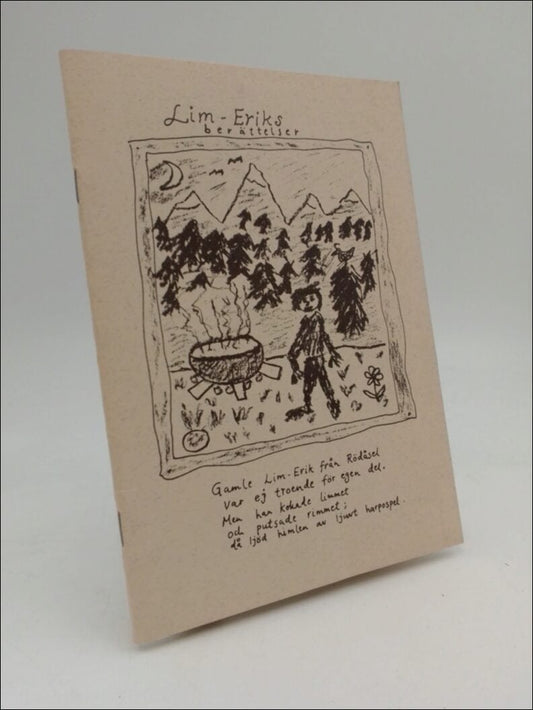 Lim-Eriks
berättelser
Gamle Lim-Erik från Rödåsel
var ej troende för egen del.
Men han kokade limmet
och putsade rimmet;
då ljöd himlen av ljuvt harpospel.